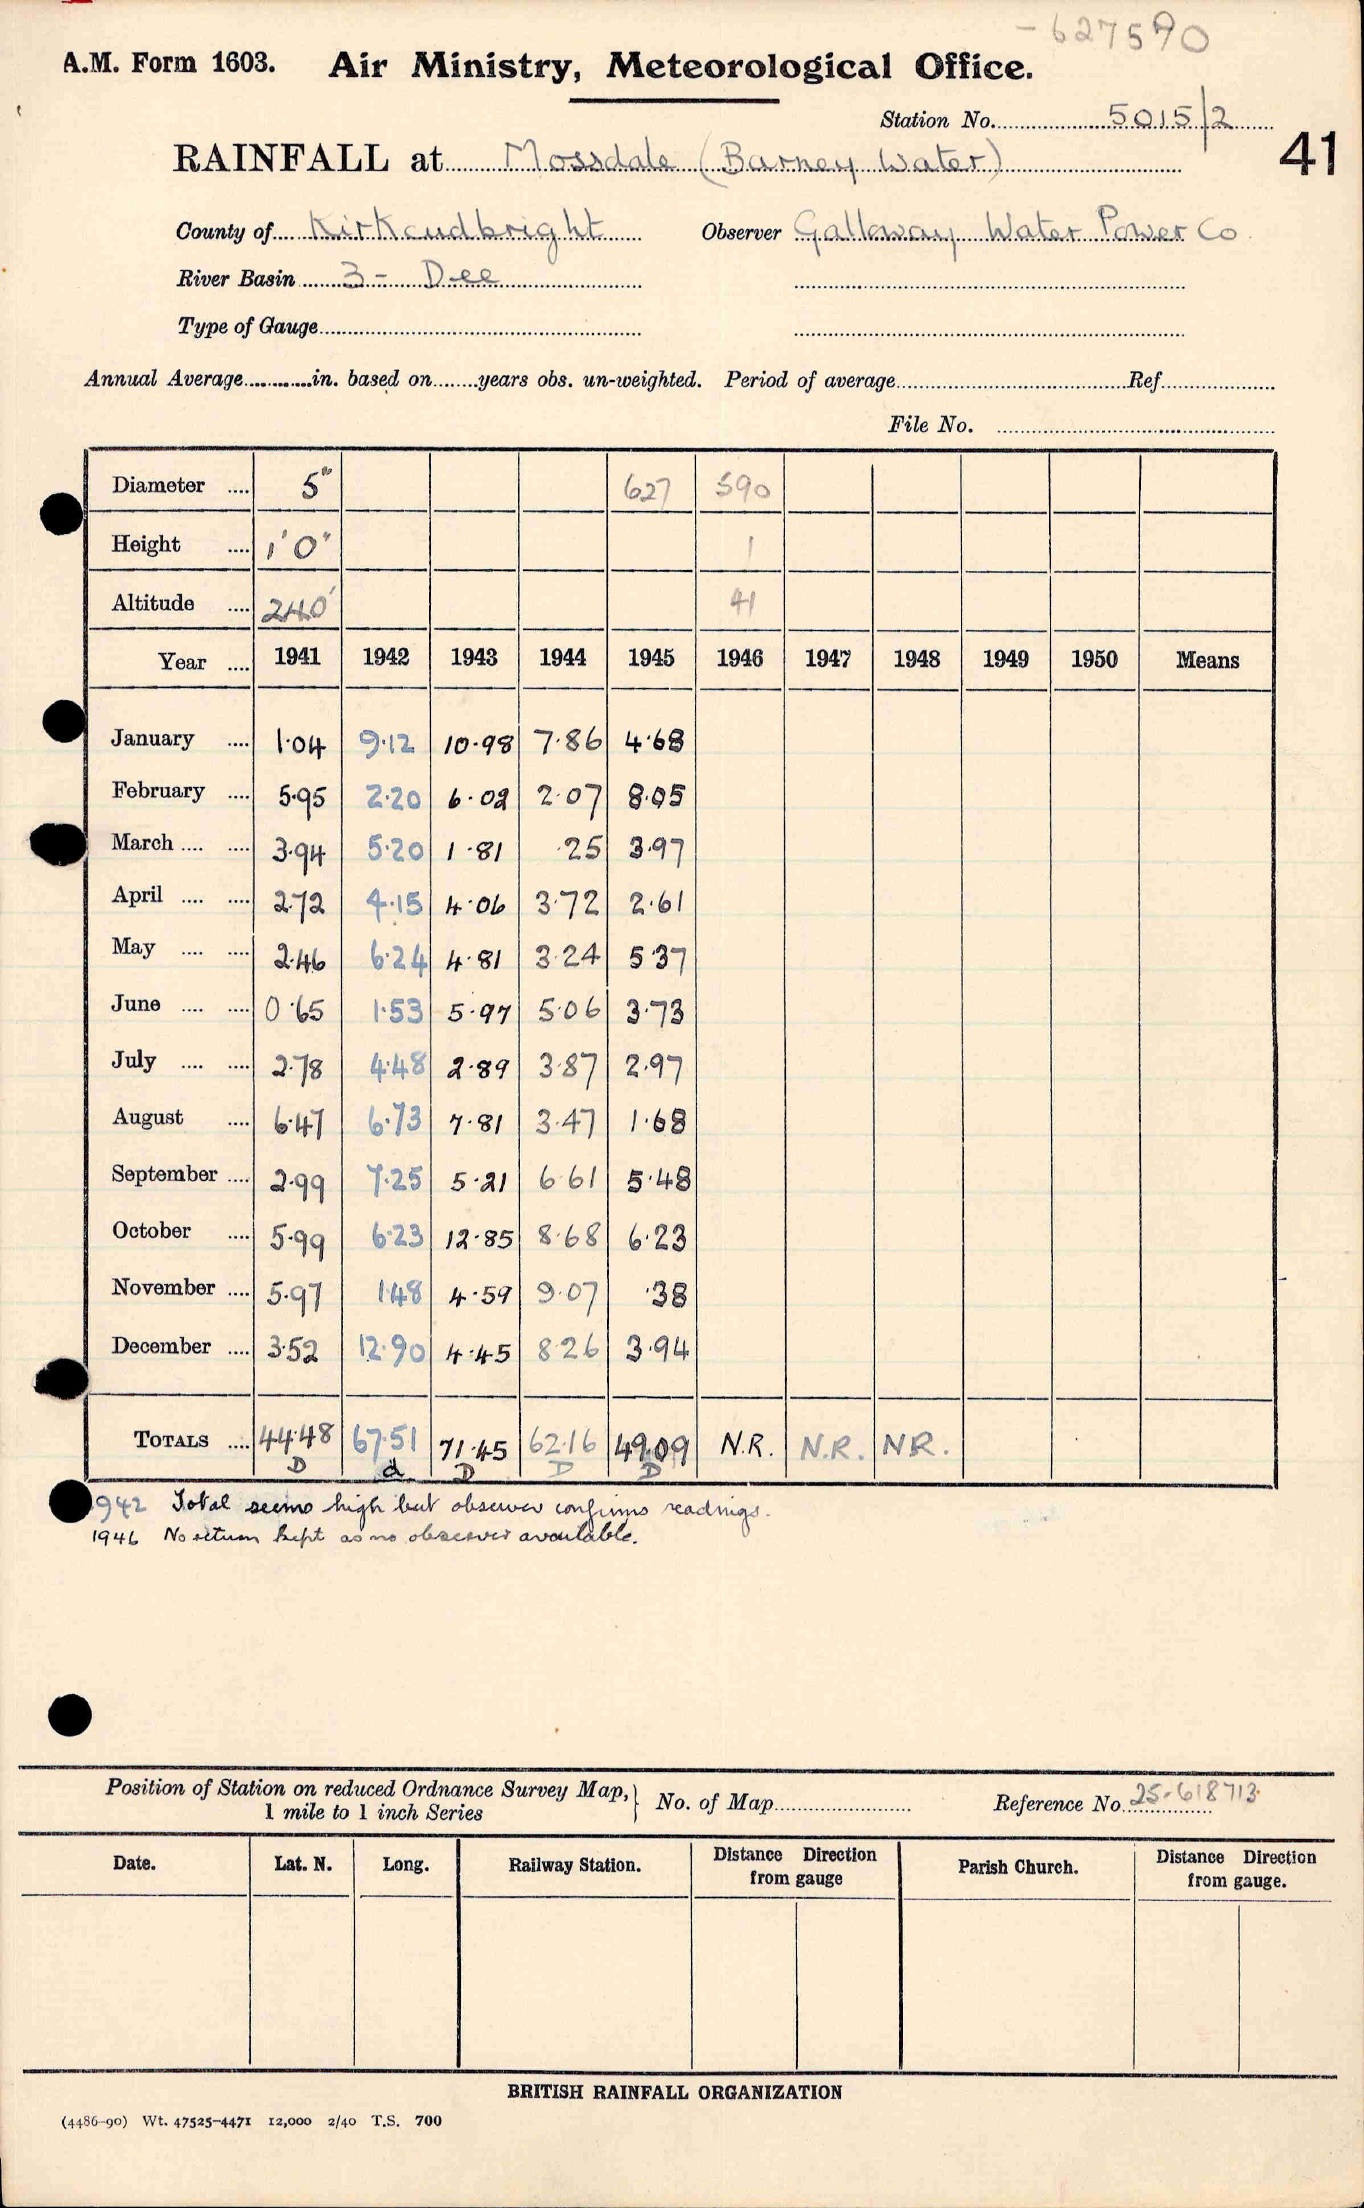 -627590
A.M. Form 1603. Air Ministry, Meteorological Office.
Station No. 5015/2
41
RAINFALL at Mossdale (Barney Water)
County of Kirkcudbright Observer Galloway Water Power Co.
River Basin 3 - Dee
Type of Gauge
Annual Average............in. based on........years obs. un-weighted. Period of average Ref.
File No.
Diameter .... 5" 627 590
Height .... 1'0" 1
Altitude .... 240' 41
Year .... 1941 1942 1943 1944 1945 1946 1947 1948 1949 1950 Means
January .... 1.04 9.12 10.98 7.86 4.68
February .... 5.95 2.20 6.02 2.07 8.05
March .... .... 3.94 5.20 1.81 .25 3.97
April .... .... 2.72 4.15 4.06 3.72 2.61
May .... .... 2.46 6.24 4.81 3.24 5.37
June .... .... 0.65 1.53 5.97 5.06 3.73
July .... .... 2.78 4.48 2.89 3.87 2.97
August .... 6.47 6.73 7.81 3.47 1.68
September .... 2.99 7.25 5.21 6.61 5.48
October .... 5.99 6.23 12.85 8.68 6.23
November .... 5.97 1.48 4.59 9.07 .38
December .... 3.52 12.90 4.45 8.26 3.94
TOTALS .... 44.48 67.51 71.45 62.16 49.09 N.R. N.R. N.R.
D d D D D
942 Total seems high but observer confirms readings.
1946 No return kept as no observer available.
Position of Station on reduced Ordnance Survey Map, 1 mile to 1 inch Series } No. of Map Reference No. 25-618713
Date. Lat. N. Long. Railway Station. Distance Direction from gauge Parish Church. Distance Direction from gauge.
BRITISH RAINFALL ORGANIZATION
(4486-90) Wt. 47525-4471 12,000 2/40 T.S. 700